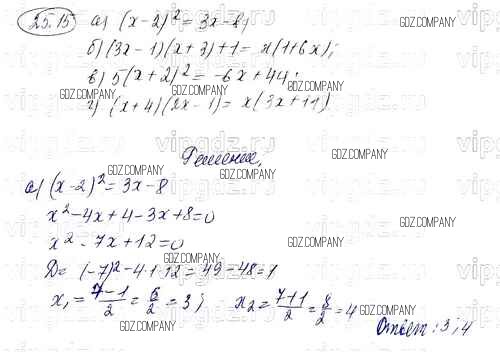 25.15 а) (x-2)² = 3x-8;
б) (3x-1)(x+3)+1 = x(1+6x);
в) 5(x+2)² = -6x+44;
г) (x+4)(2x-1) = x(3x+11)
Решение,
а) (x-2)² = 3x-8
x²-4x+4-3x+8=0
x²-7x+12=0
D= (-7)²-4·1·12=49-48=1
x₁= 7-1/2 = 6/2 = 3; x₂= 7+1/2 = 8/2 = 4
Ответ: 3; 4
GDZ.COMPANY
vipgdz.ru